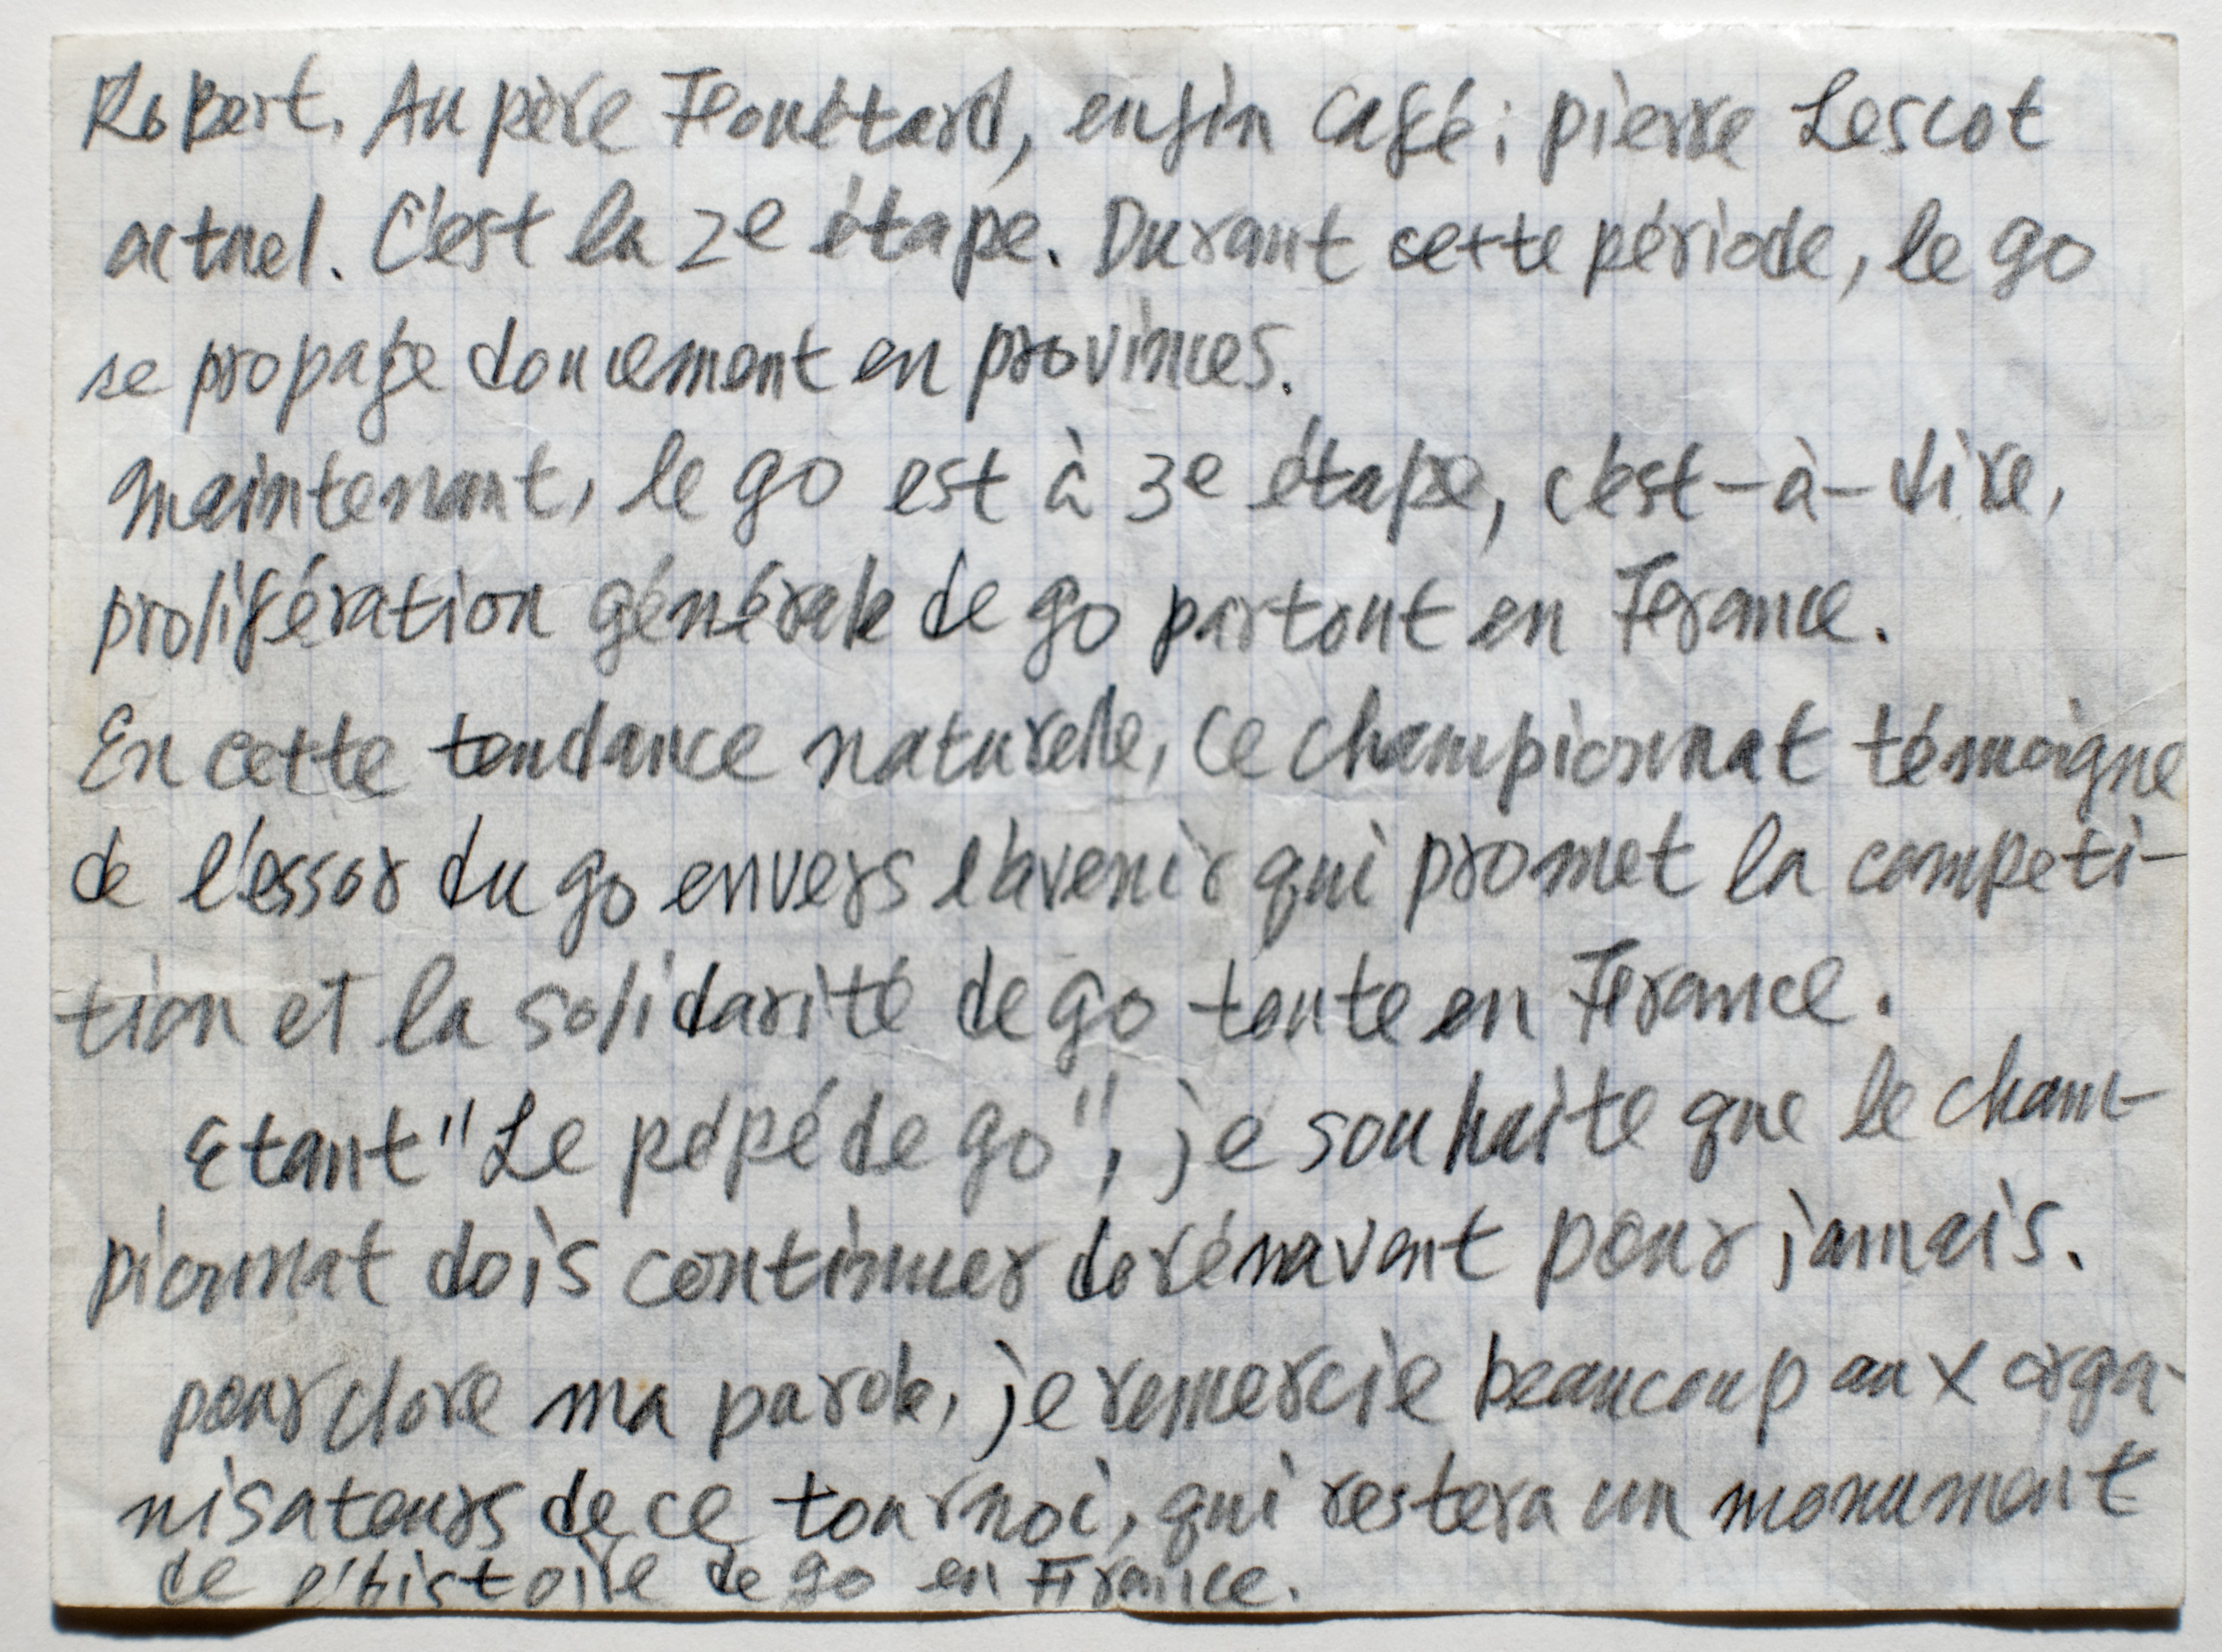 Robert. Au père Fouétard, enfin café : pierre Lescot
actuel. C'est la 2e étape. Durant cette période, le go
se propage doucement en provinces.
maintenant, le go est à 3e étape, c'est-à-dire,
prolifération générale de go partout en France.
En cette tendance naturelle, ce championnat témoigne
de l'essor du go envers l'avenir qui promet la competi-
tion et la solidarité de go toute en France.
Etant "Le pépé de go", je souhaite que le cham-
pionnat dois continuer dorénavant pour jamais.
pour clore ma parole, je remercie beaucoup aux orga-
nisateurs de ce tournoi, qui restera un monument
de l'histoire de go en France.